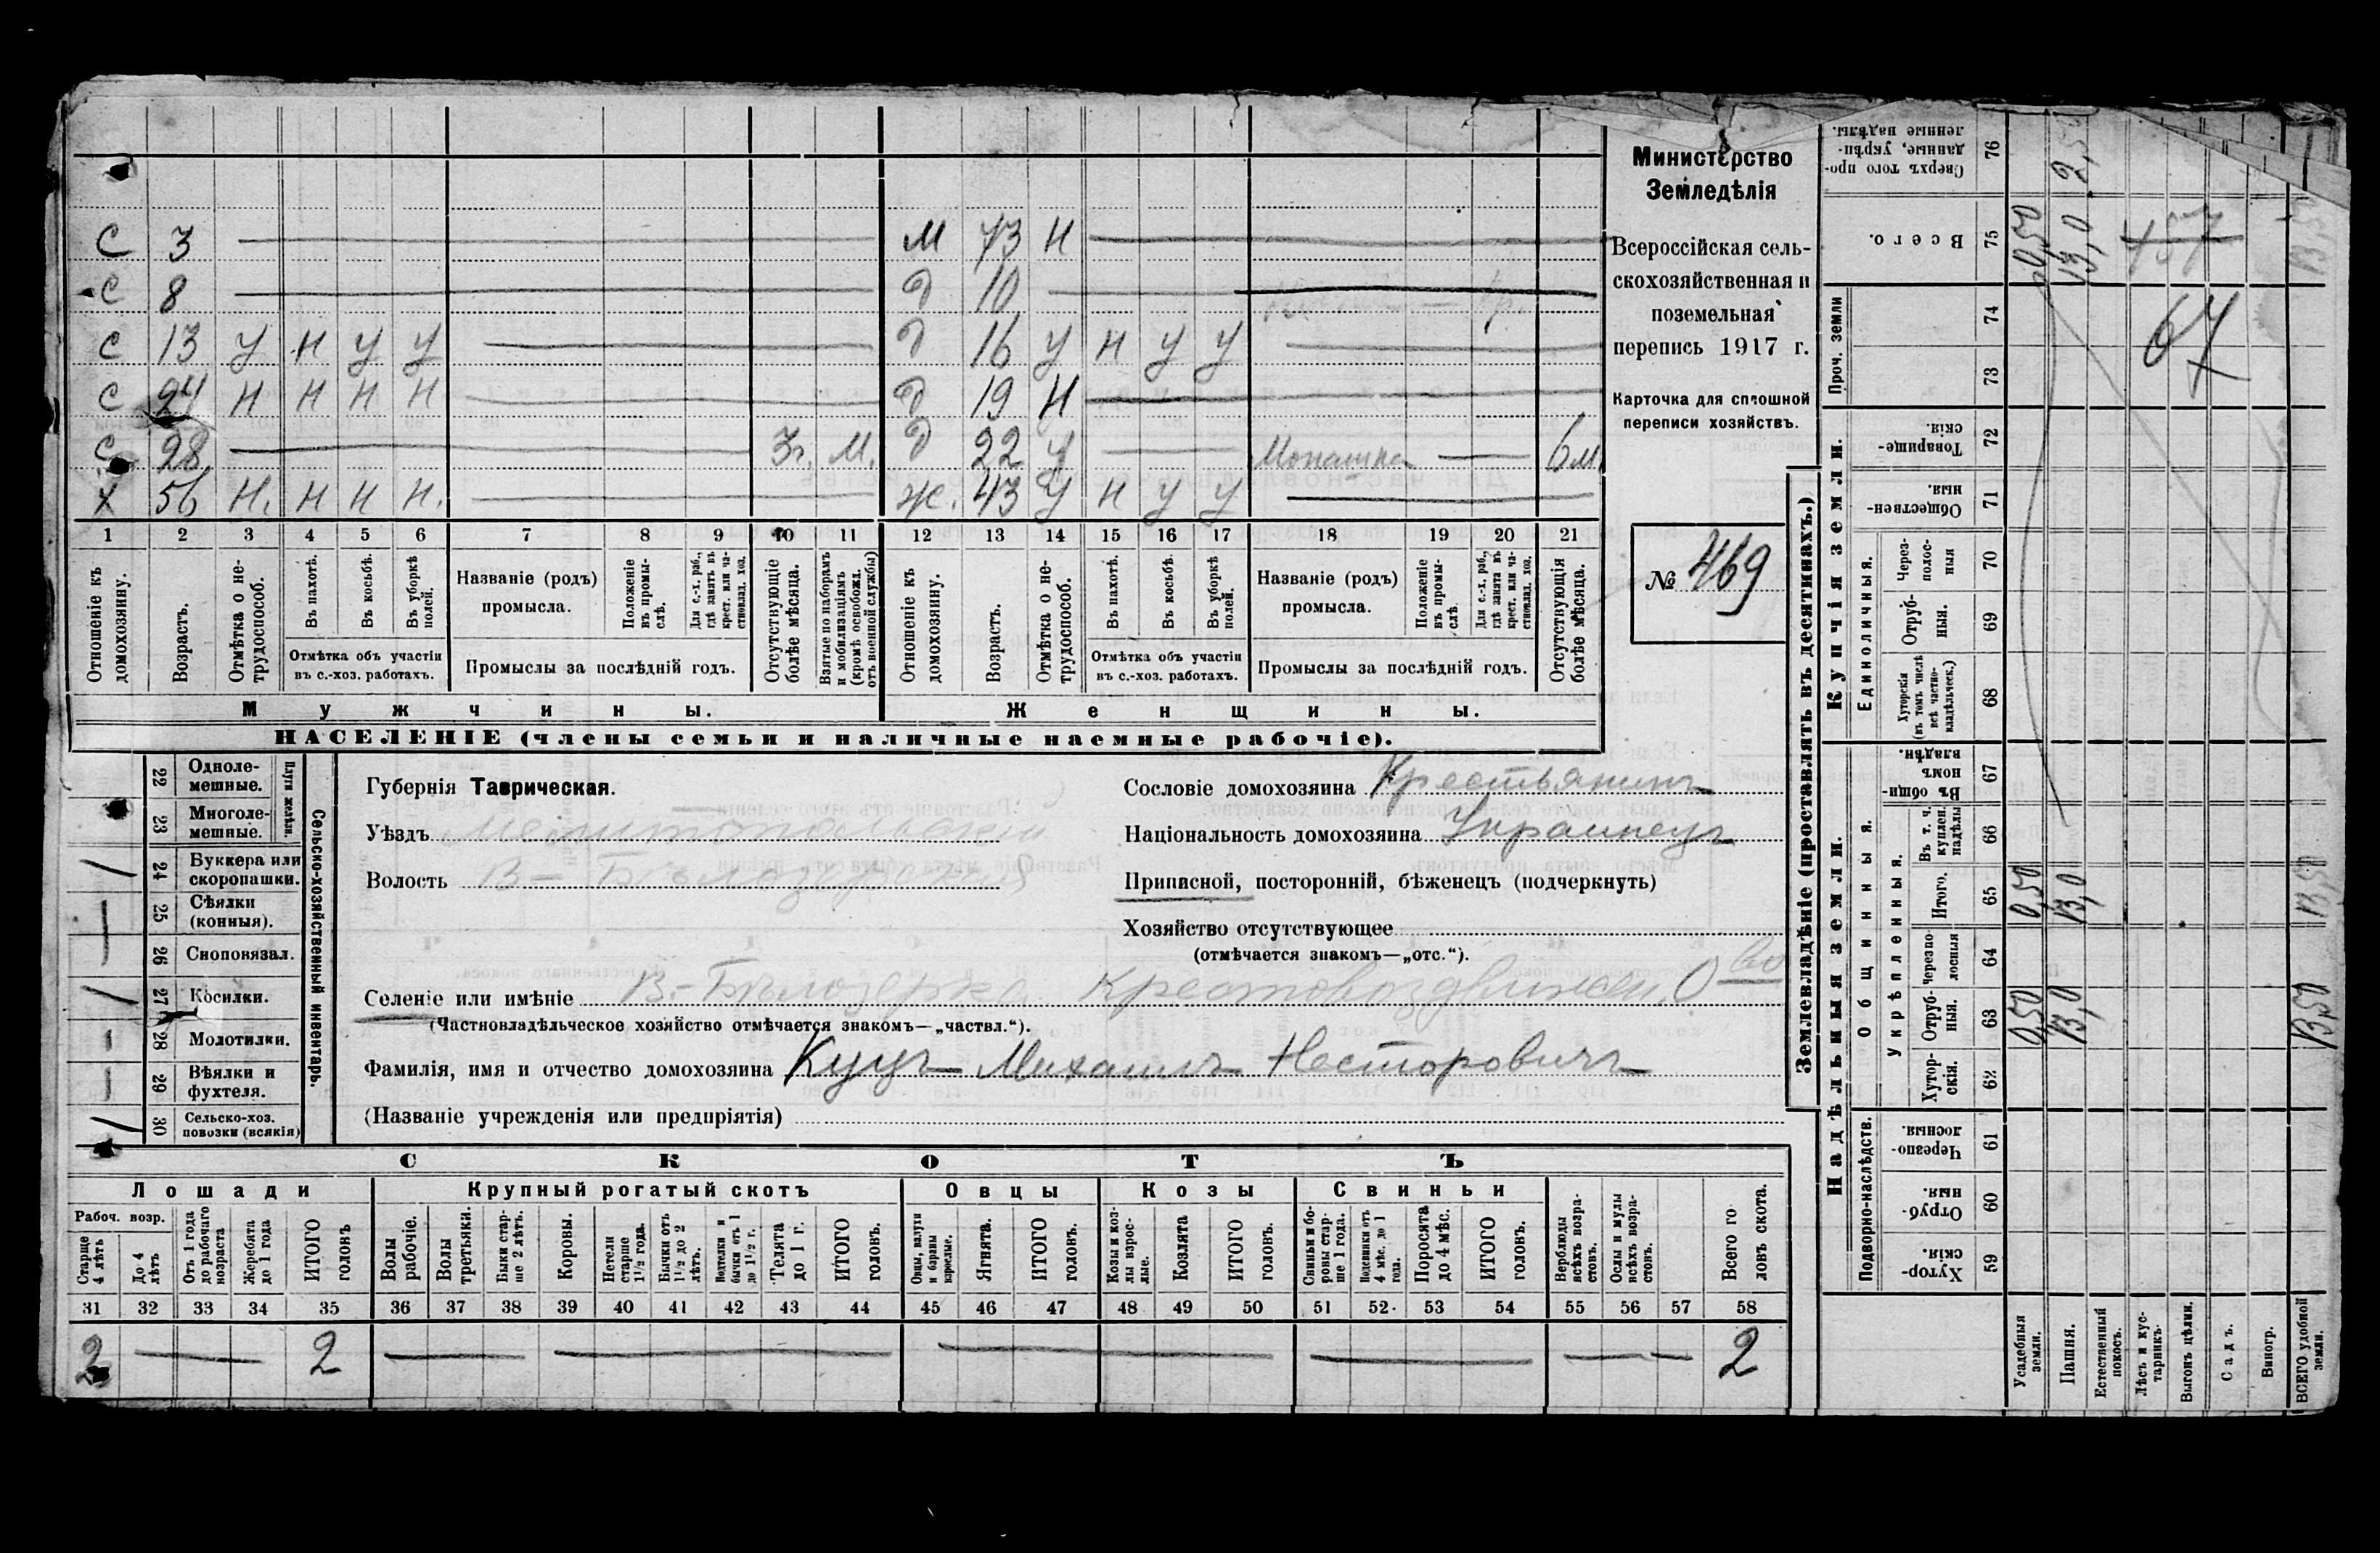 Министерство
Земледѣлія
Всероссійская сель-
скохозяйственная и
поземельная
перепись 1917 г.
Карточка для сплошной
переписи хозяйствъ.
№ 469
С 3 — М 73 Н —
С 8 — Д 10 —
С 13 У Н У У — Д 16 У Н У У —
С 24 Н Н Н Н — Д 19 Н —
С 28 — 3г. М. Д 22 У — Монашка — 6м.
Х 56 Н. Н Н Н. — Ж. 43 У Н У У —
1 2 3 4 5 6 7 8 9 10 11 12 13 14 15 16 17 18 19 20 21
Отношеніе къ домохозяину.
Возрастъ.
Отмѣтка о не-трудоспособ.
Въ пахотѣ.
Въ косьбѣ.
Въ уборкѣ полей.
Отмѣтка объ участіи
въ с.-хоз. работахъ.
Названіе (родъ)
промысла.
Положеніе въ промы-слѣ.
Для с.-х. раб., гдѣ занятъ въ крест. или ча-стновлад. хоз.
Промыслы за послѣдній годъ.
Отсутствующіе болѣе мѣсяца.
Взятые по наборамъ и мобилизаціямъ (кромѣ освобожд. отъ военной службы)
Отношеніе къ домохозяину.
Возрастъ.
Отмѣтка о не-трудоспособ.
Въ пахотѣ.
Въ косьбѣ.
Въ уборкѣ полей.
Отмѣтка объ участіи
въ с.-хоз. работахъ.
Названіе (родъ)
промысла.
Положеніе въ промы-слѣ.
Для с.-х. раб., гдѣ занята въ крест. или ча-стновлад. хоз.
Промыслы за послѣдній годъ.
Отсутствующія болѣе мѣсяца.
Мужчины. Женщины.
НАСЕЛЕНІЕ (члены семьи и наличные наемные рабочіе).
22 Одноле-мешные.
23 Многоле-мешные.
Плуги желѣзн.
24 Буккера или скоропашки.
25 Сѣялки (конныя).
26 Сноповязал.
27 Косилки.
28 Молотилки.
29 Вѣялки и фухтеля.
30 Сельско-хоз. повозки (всякія)
Сельско-хозяйственный инвентарь.
Губернія Таврическая.
Уѣздъ Мелитопольскій
Волость В-Бѣлозерская
Сословіе домохозяина Крестьянинъ
Національность домохозяина Украинецъ
Приписной, посторонній, бѣженецъ (подчеркнуть)
Хозяйство отсутствующее
(отмѣчается знакомъ—„отс.“).
Селеніе или имѣніе В-Бѣлозерка Крестовоздвижен. О-во
(Частновладѣльческое хозяйство отмѣчается знакомъ—„частвл.“).
Фамилія, имя и отчество домохозяина Куцъ Михаилъ Несторовичъ
(Названіе учрежденія или предпріятія)
СКОТЪ
Лошади Крупный рогатый скотъ Овцы Козы Свиньи
Рабоч. возр.
Старще 4 лѣтъ
До 4 лѣтъ
Отъ 1 года до рабочаго возраста
Жеребята до 1 года
ИТОГО головъ
Волы рабочіе.
Волы третьяки.
Быки стар-ше 2 лѣтъ.
Коровы.
Нетели старше 1 1/2 года.
Бычки отъ 1 1/2 до 2 лѣтъ.
Подтелки и бычки отъ 1 до 1 1/2 г.
Телята до 1 г.
ИТОГО головъ.
Овцы, валухи и бараны взрослые.
Ягнята.
ИТОГО головъ.
Козы и коз-лы взрос-лые.
Козлята
ИТОГО головъ.
Свиньи и бо-ровы стар-ше 1 года.
Подсвинки отъ 4 мѣс. до 1 года.
Поросята до 4 мѣс.
ИТОГО головъ.
Верблюды всѣхъ возра-стовъ.
Ослы и мулы всѣхъ возра-стовъ.
Всего го-ловъ скота.
31 32 33 34 35 36 37 38 39 40 41 42 43 44 45 46 47 48 49 50 51 52 53 54 55 56 57 58
2 — 2 — — — — — — 2
Землевладѣніе (проставлять въ десятинахъ.)
Надѣльныя земли.
Купчія земли.
Проч. земли
Подворно-наслѣдств.
Общинныя.
Укрѣпленныя.
Единоличныя.
Хутор-скія. 59
Отруб-ныя. 60
Черезпо-лосныя. 61
Хутор-скія. 62
Отруб-ныя. 63
Черезпо-лосныя 64
Итого. 65
Въ т. ч. куплен. надѣлы 66
Въ общин-номъ владѣн. 67
Хуторскія (въ томъ числѣ всѣ частно-владѣльческ.) 68
Отруб-ныя. 69
Через-полос-ныя 70
Обществен-ныя. 71
Товарище-скія. 72
73
74
Всего. 75
Сверхъ того про-данные, укрѣп-ленные надѣлы. 76
Усадебныя земли. 0,50 0,50 0,50
Пашня. 13,0 13,0 13,0
Естественный покосъ.
Лѣсъ и кус-тарникъ.
Выгонъ цѣлин.
Садъ.
Виногр.
ВСЕГО удобной земли. 13,50 13,50 13,50
457
67